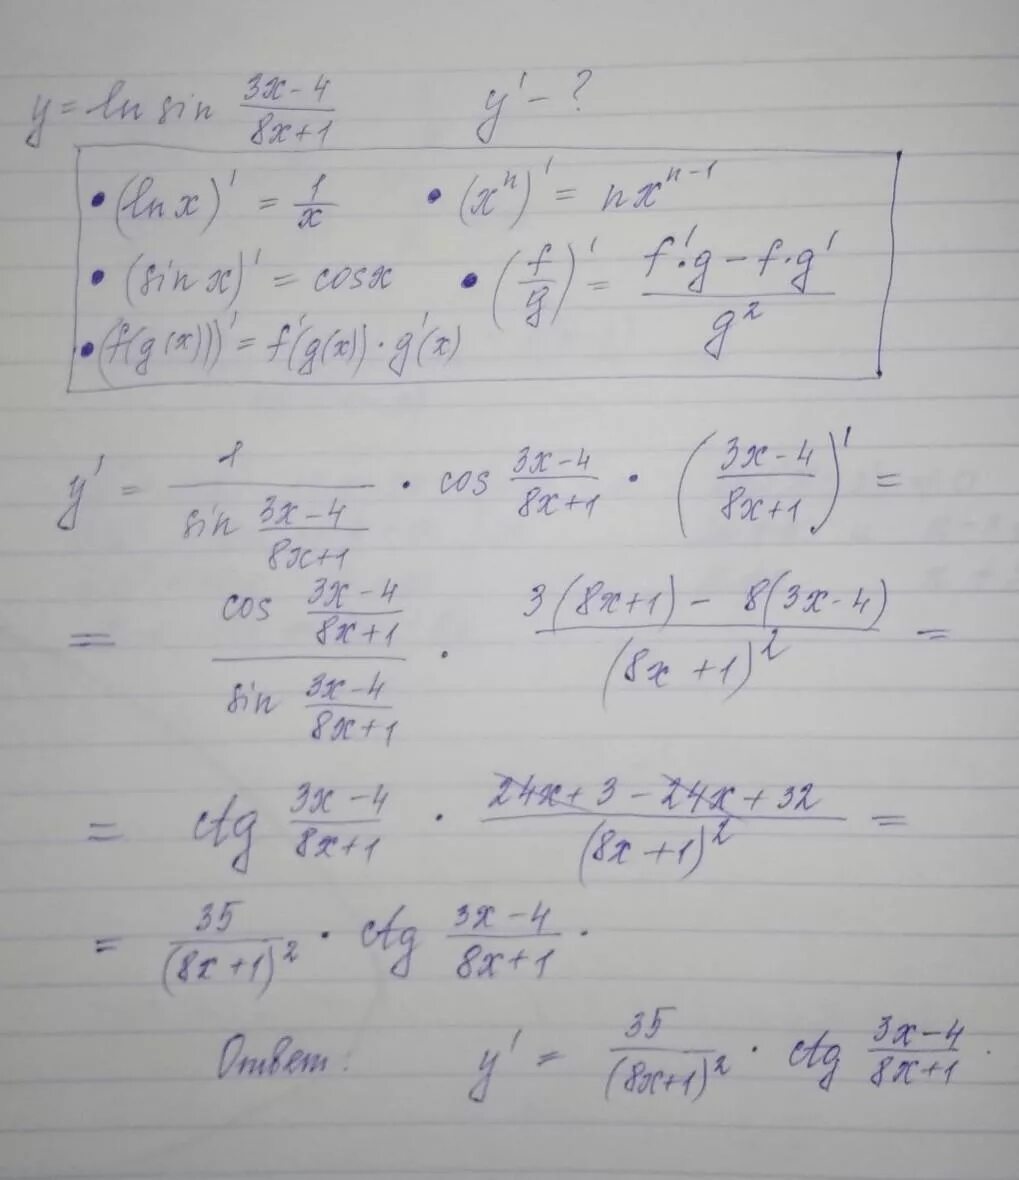 y = ln sin (3x-4)/(8x+1)   y' - ?
• (ln x)' = 1/x   • (xⁿ)' = nxⁿ⁻¹
• (sin x)' = cosx   • (f/g)' = (f'·g - f·g')/g²
• (f(g(x)))' = f'(g(x)) · g'(x)
y' = 1/(sin (3x-4)/(8x+1)) · cos (3x-4)/(8x+1) · ((3x-4)/(8x+1))' =
= (cos (3x-4)/(8x+1))/(sin (3x-4)/(8x+1)) · (3(8x+1) - 8(3x-4))/(8x+1)² =
= ctg (3x-4)/(8x+1) · (24x+3-24x+32)/(8x+1)² =
= 35/(8x+1)² · ctg (3x-4)/(8x+1).
Ответ: y' = 35/(8x+1)² · ctg (3x-4)/(8x+1).